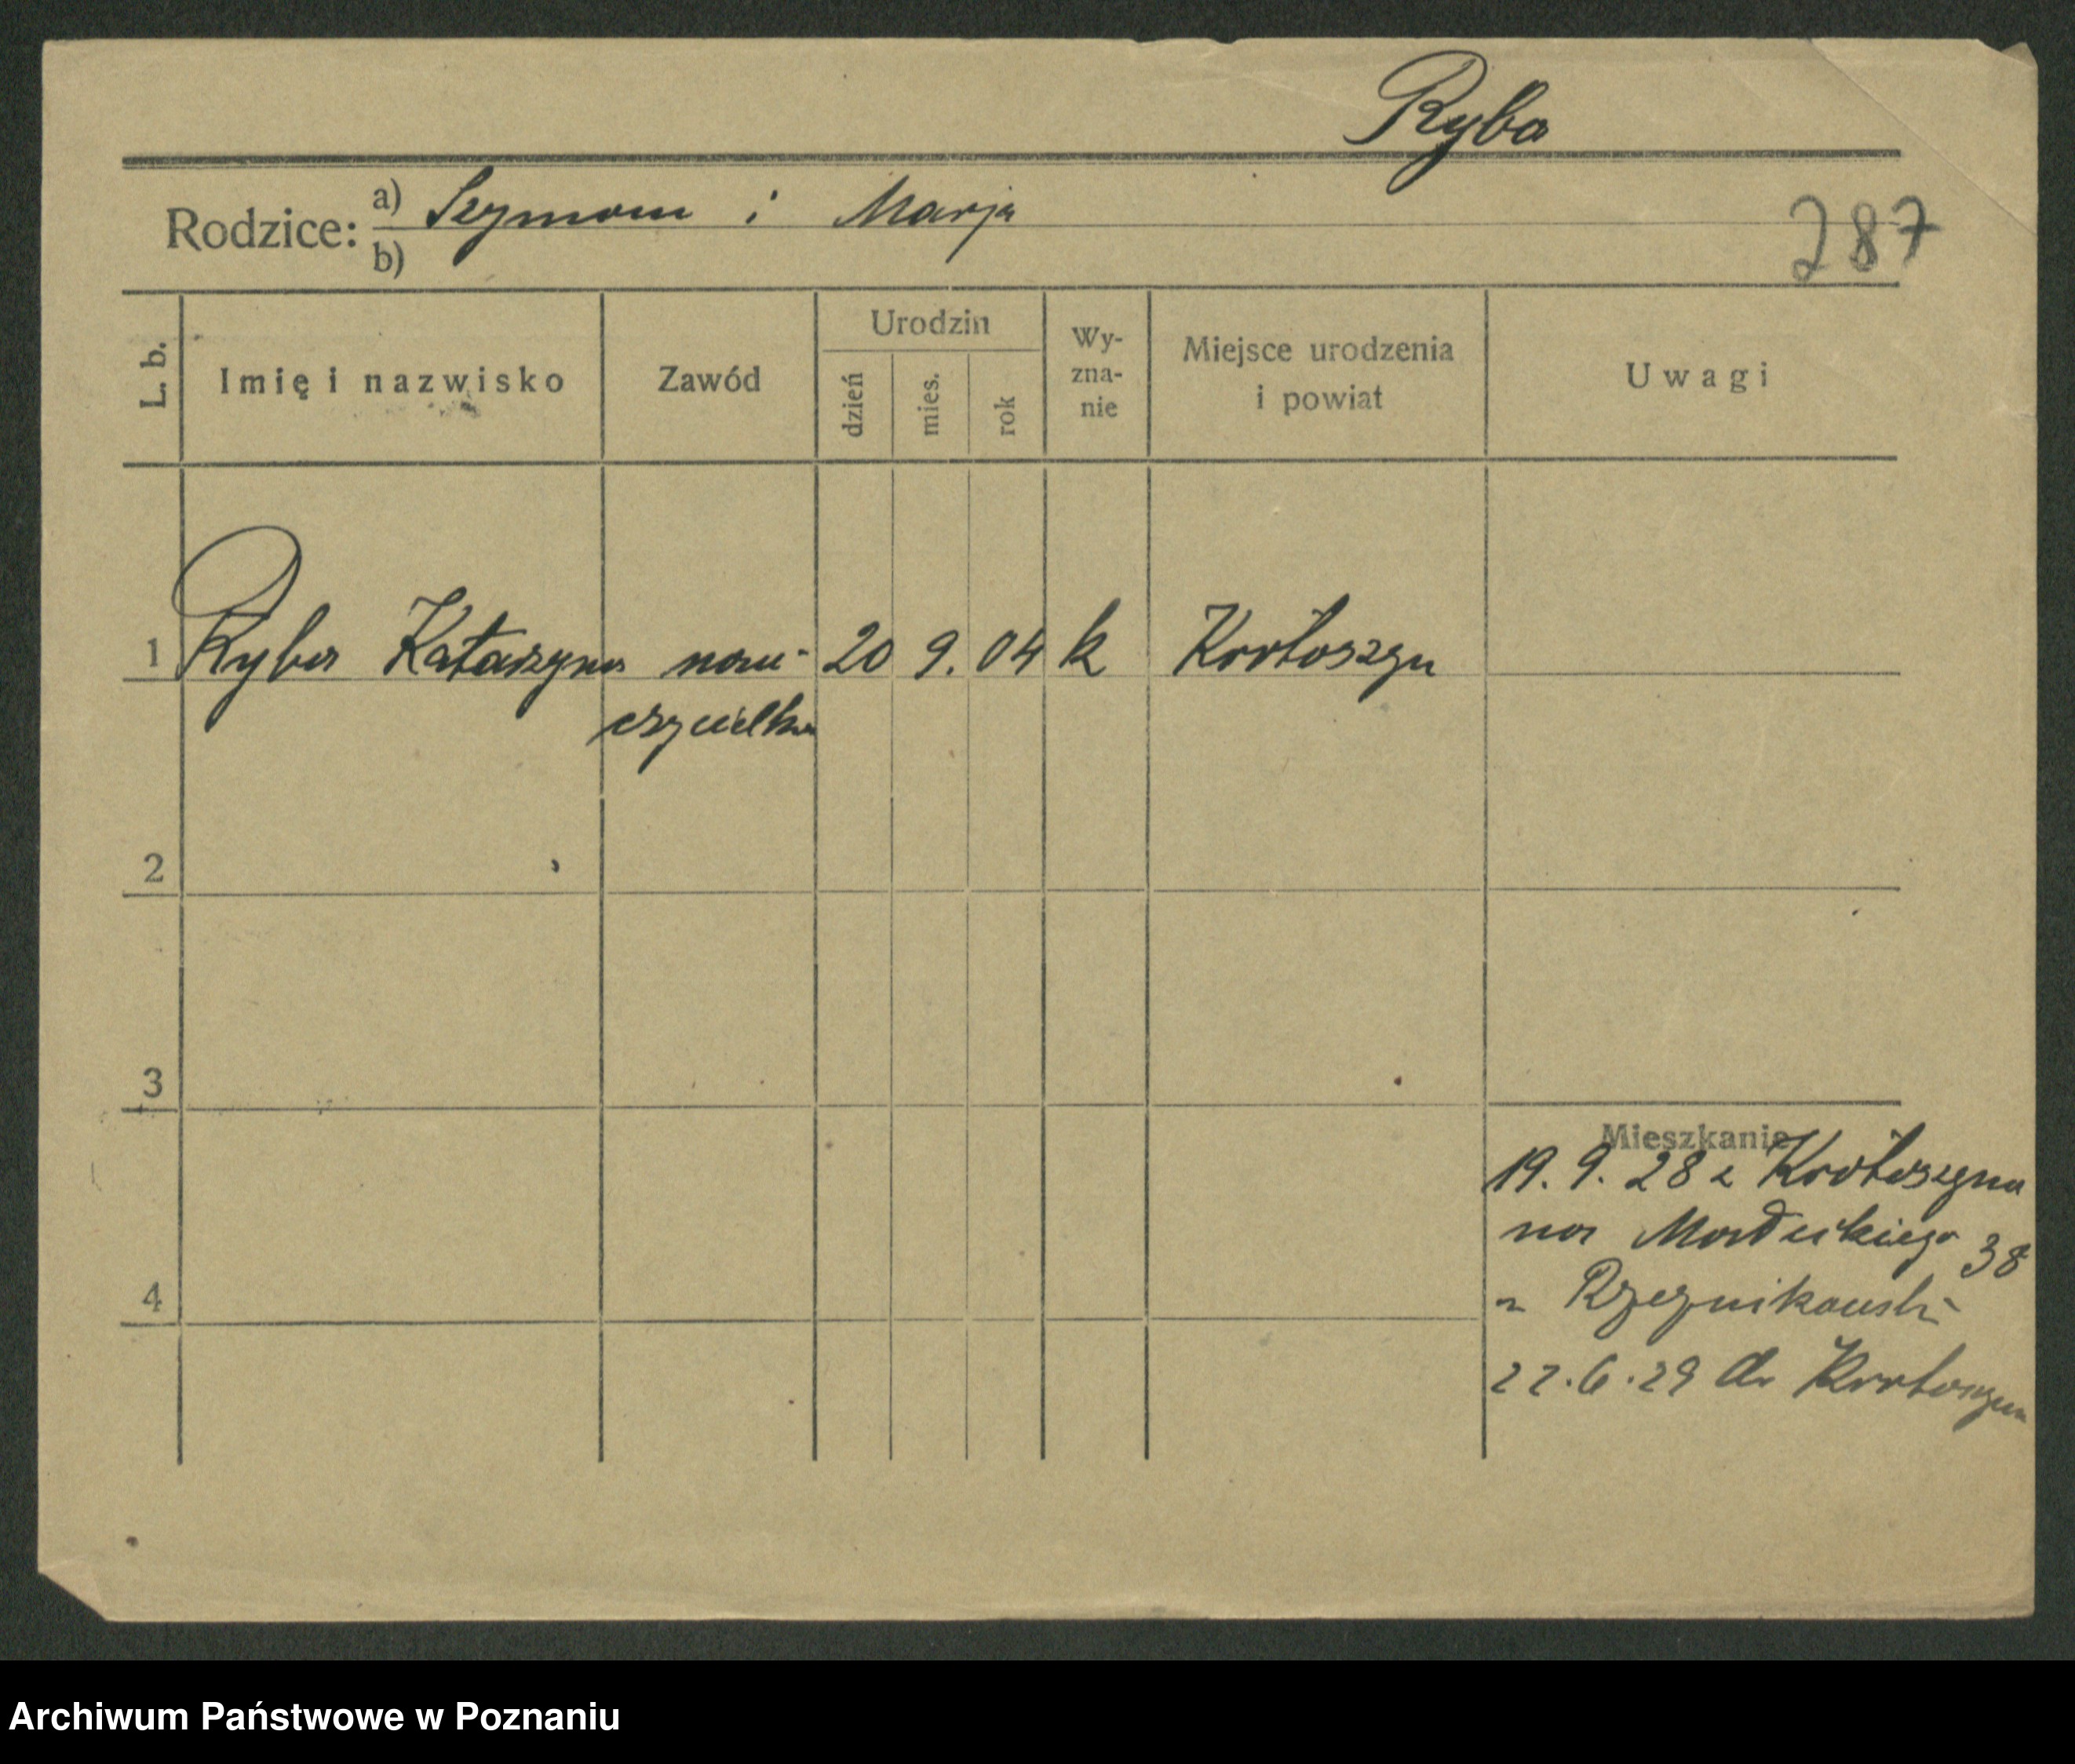 Ryba
Rodzice: a) Szymon i Marja
b)
287
L. b. Imię i nazwisko Zawód Urodzin dzień mies. rok Wy-zna-nie Miejsce urodzenia i powiat Uwagi
1 Ryba Katarzyna nau- 20 9. 04 k Krotoszyn
czycielka
2
3
Mieszkanie
19. 9. 28 z Krotoszyna
na 38
4
22.6.29 do Krotoszyna
Archiwum Państwowe w Poznaniu